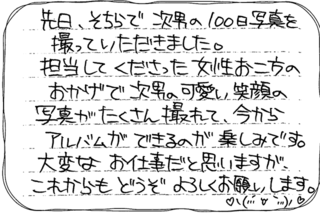 先日、そちらで 次男の100日写真を
撮っていただきました。
担当してくださった 女性お二方の
おかげで次男の可愛い笑顔の
写真がたくさん撮れて、今から
アルバムが できるのが 楽しみです。
大変な お仕事だと思いますが、
これからも どうぞ よろしくお願いします。